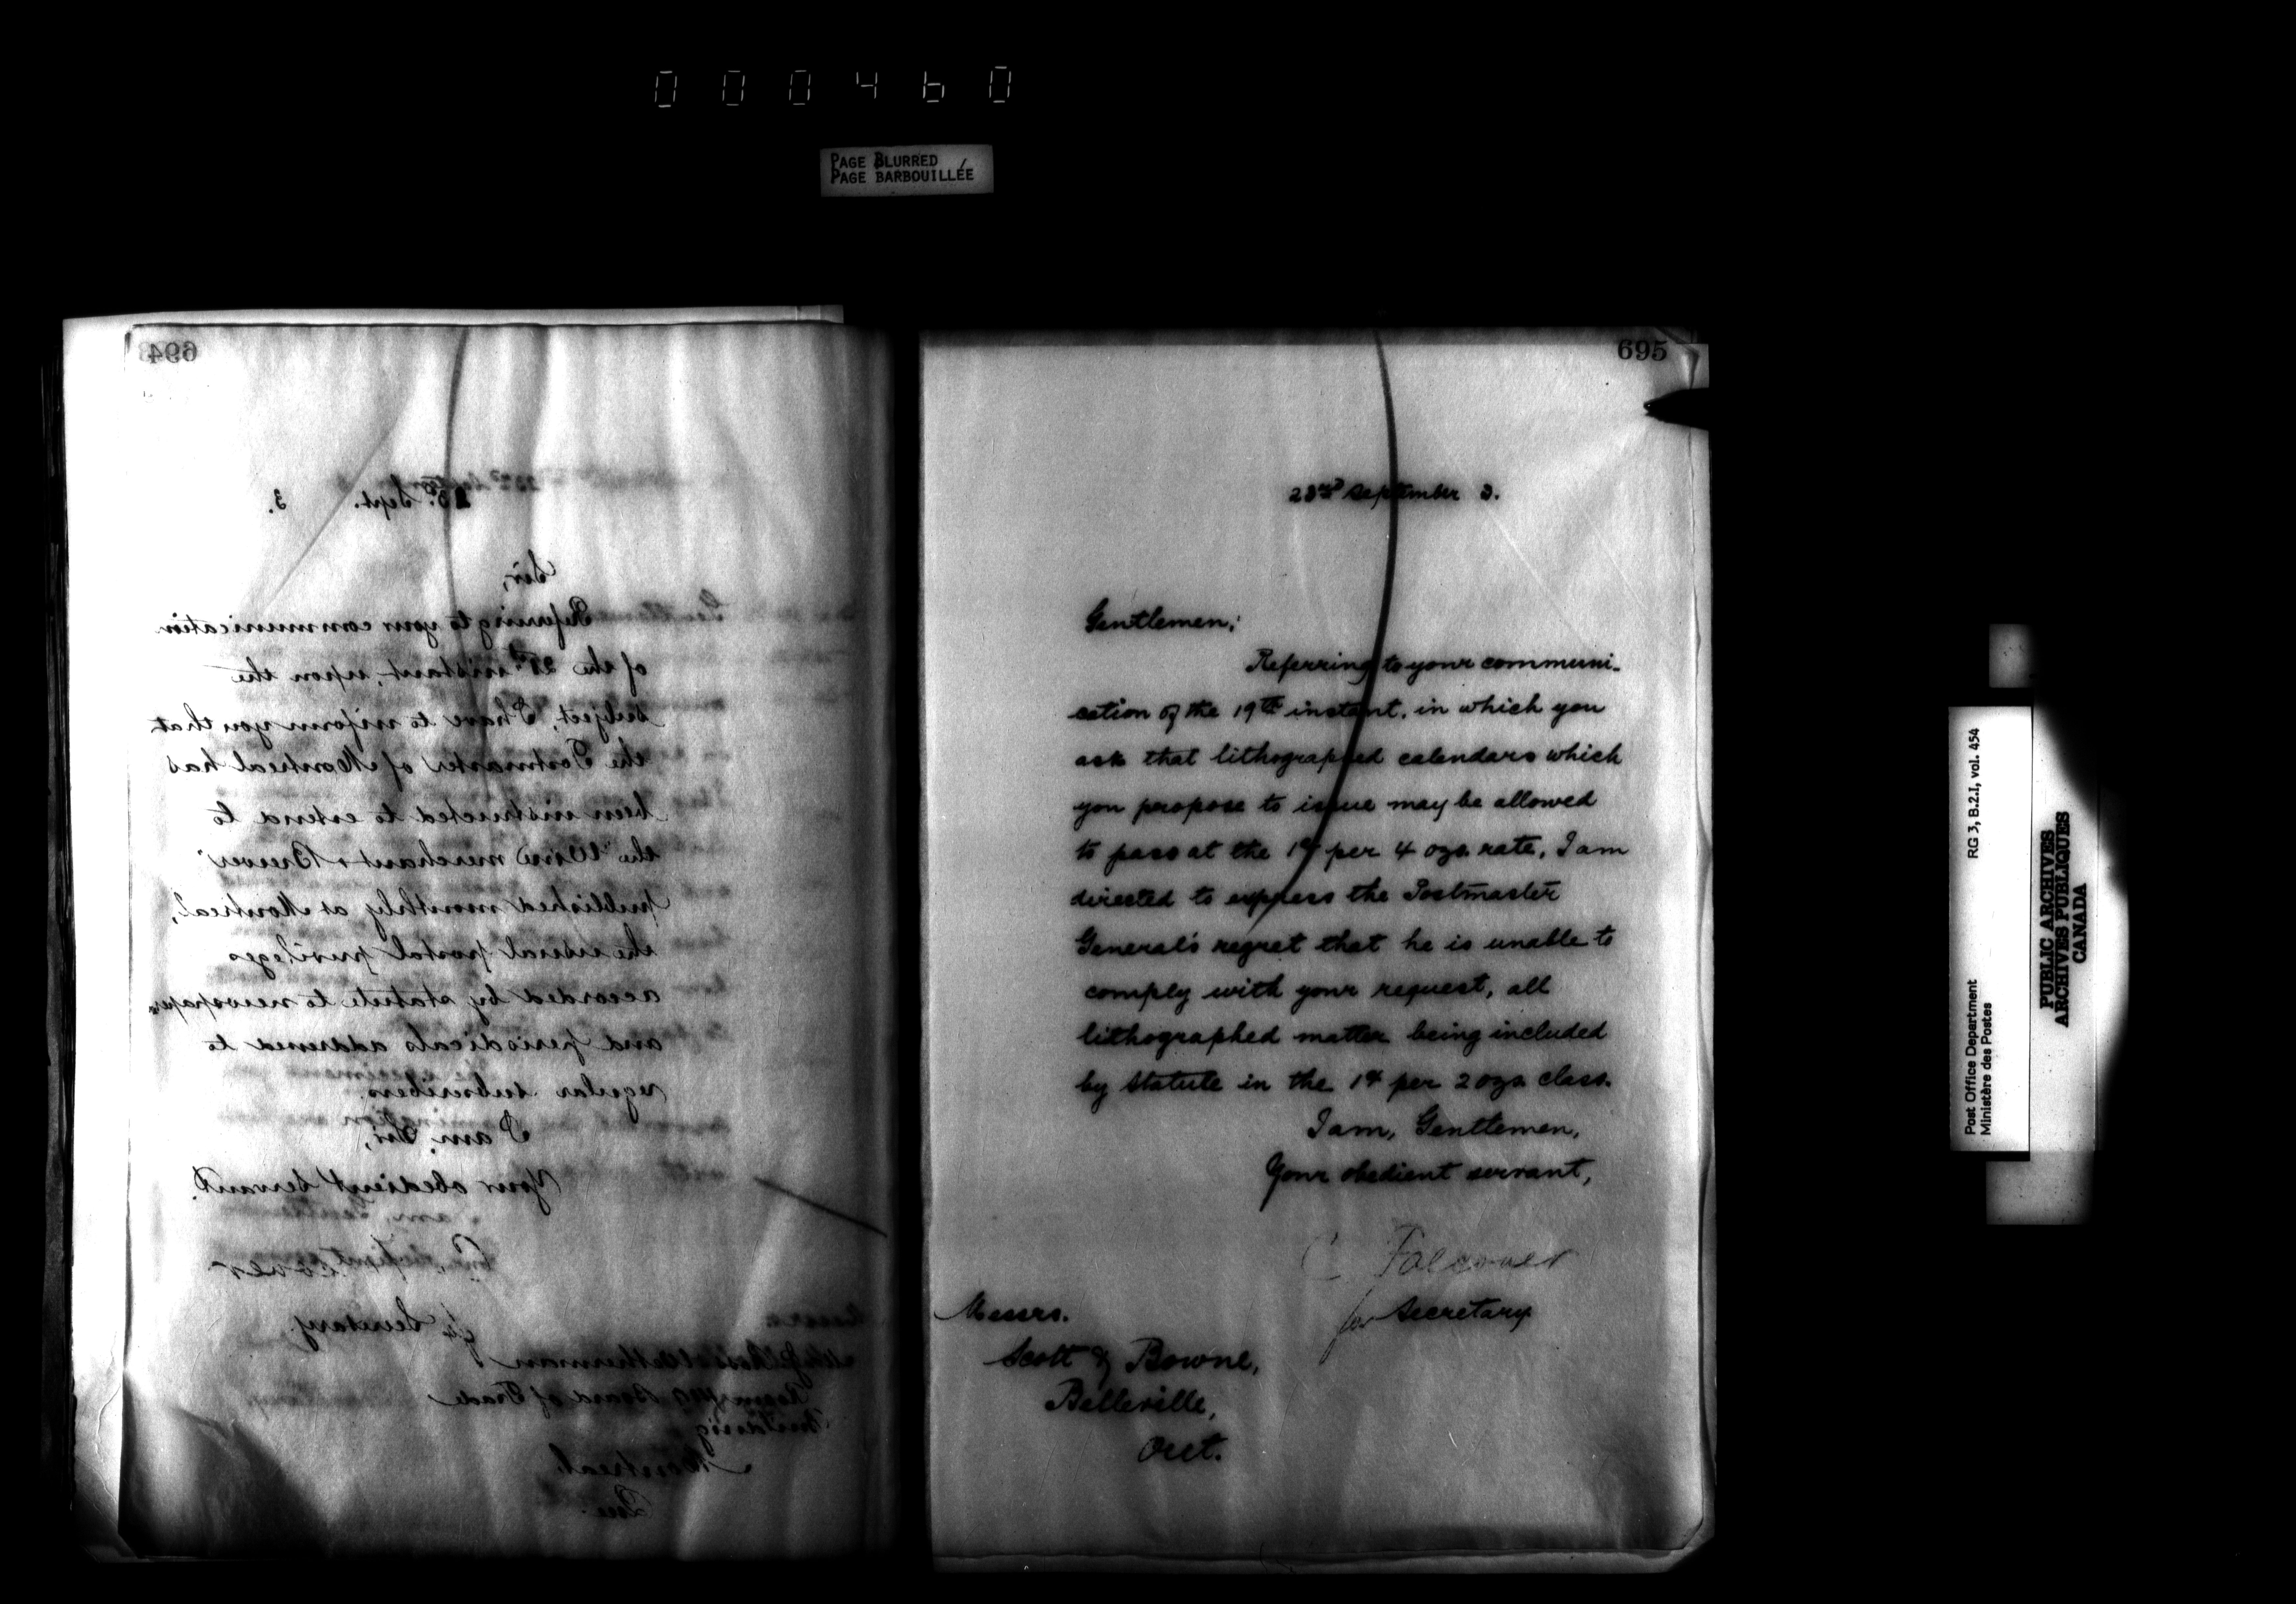 000460
PAGE BLURRED
PAGE BARBOUILLÉE
694
Sept. 3.
Sir,
Referring to your communication
of the 21st instant, upon the
subject, I have to inform you that
the Postmaster of Montreal has
been instructed to extend to
the "Wine merchant & Brewer"
published monthly at Montreal,
the usual postal privileges
accorded by statute to newspapers
and periodicals addressed to
regular subscribers.
I am, Sir,
Your obedient servant.
for Secretary.
Board of Trade
Building,
Montreal,
Que.
695
23rd September 3.
Gentlemen;
Referring to your communi-
cation of the 19th instant, in which you
ask that lithographed calendars which
you propose to issue may be allowed
to pass at the 1¢ per 4 ozs. rate, I am
directed to express the Postmaster
General's regret that he is unable to
comply with your request, all
lithographed matter being included
by Statute in the 1¢ per 2 ozs. class.
I am, Gentlemen,
Your obedient servant,
C Falconer
for Secretary
Messrs.
Scott & Bowne,
Belleville,
Ont.
Post Office Department RG 3, B.2.I, vol. 454
Ministère des Postes
PUBLIC ARCHIVES
ARCHIVES PUBLIQUES
CANADA